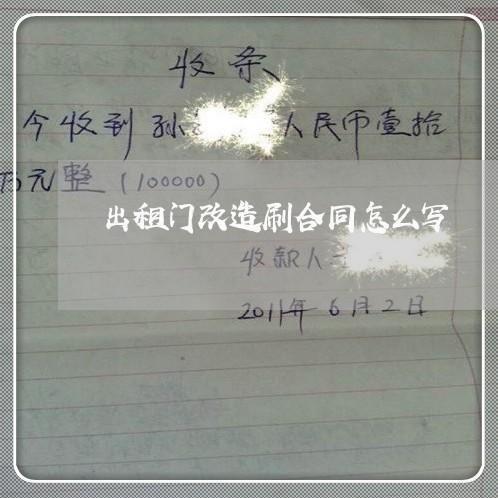 收条
今收到孙 人民币壹拾
万元整(100000)
出租门改造刷合同怎么写
收款人
2011年6月2日